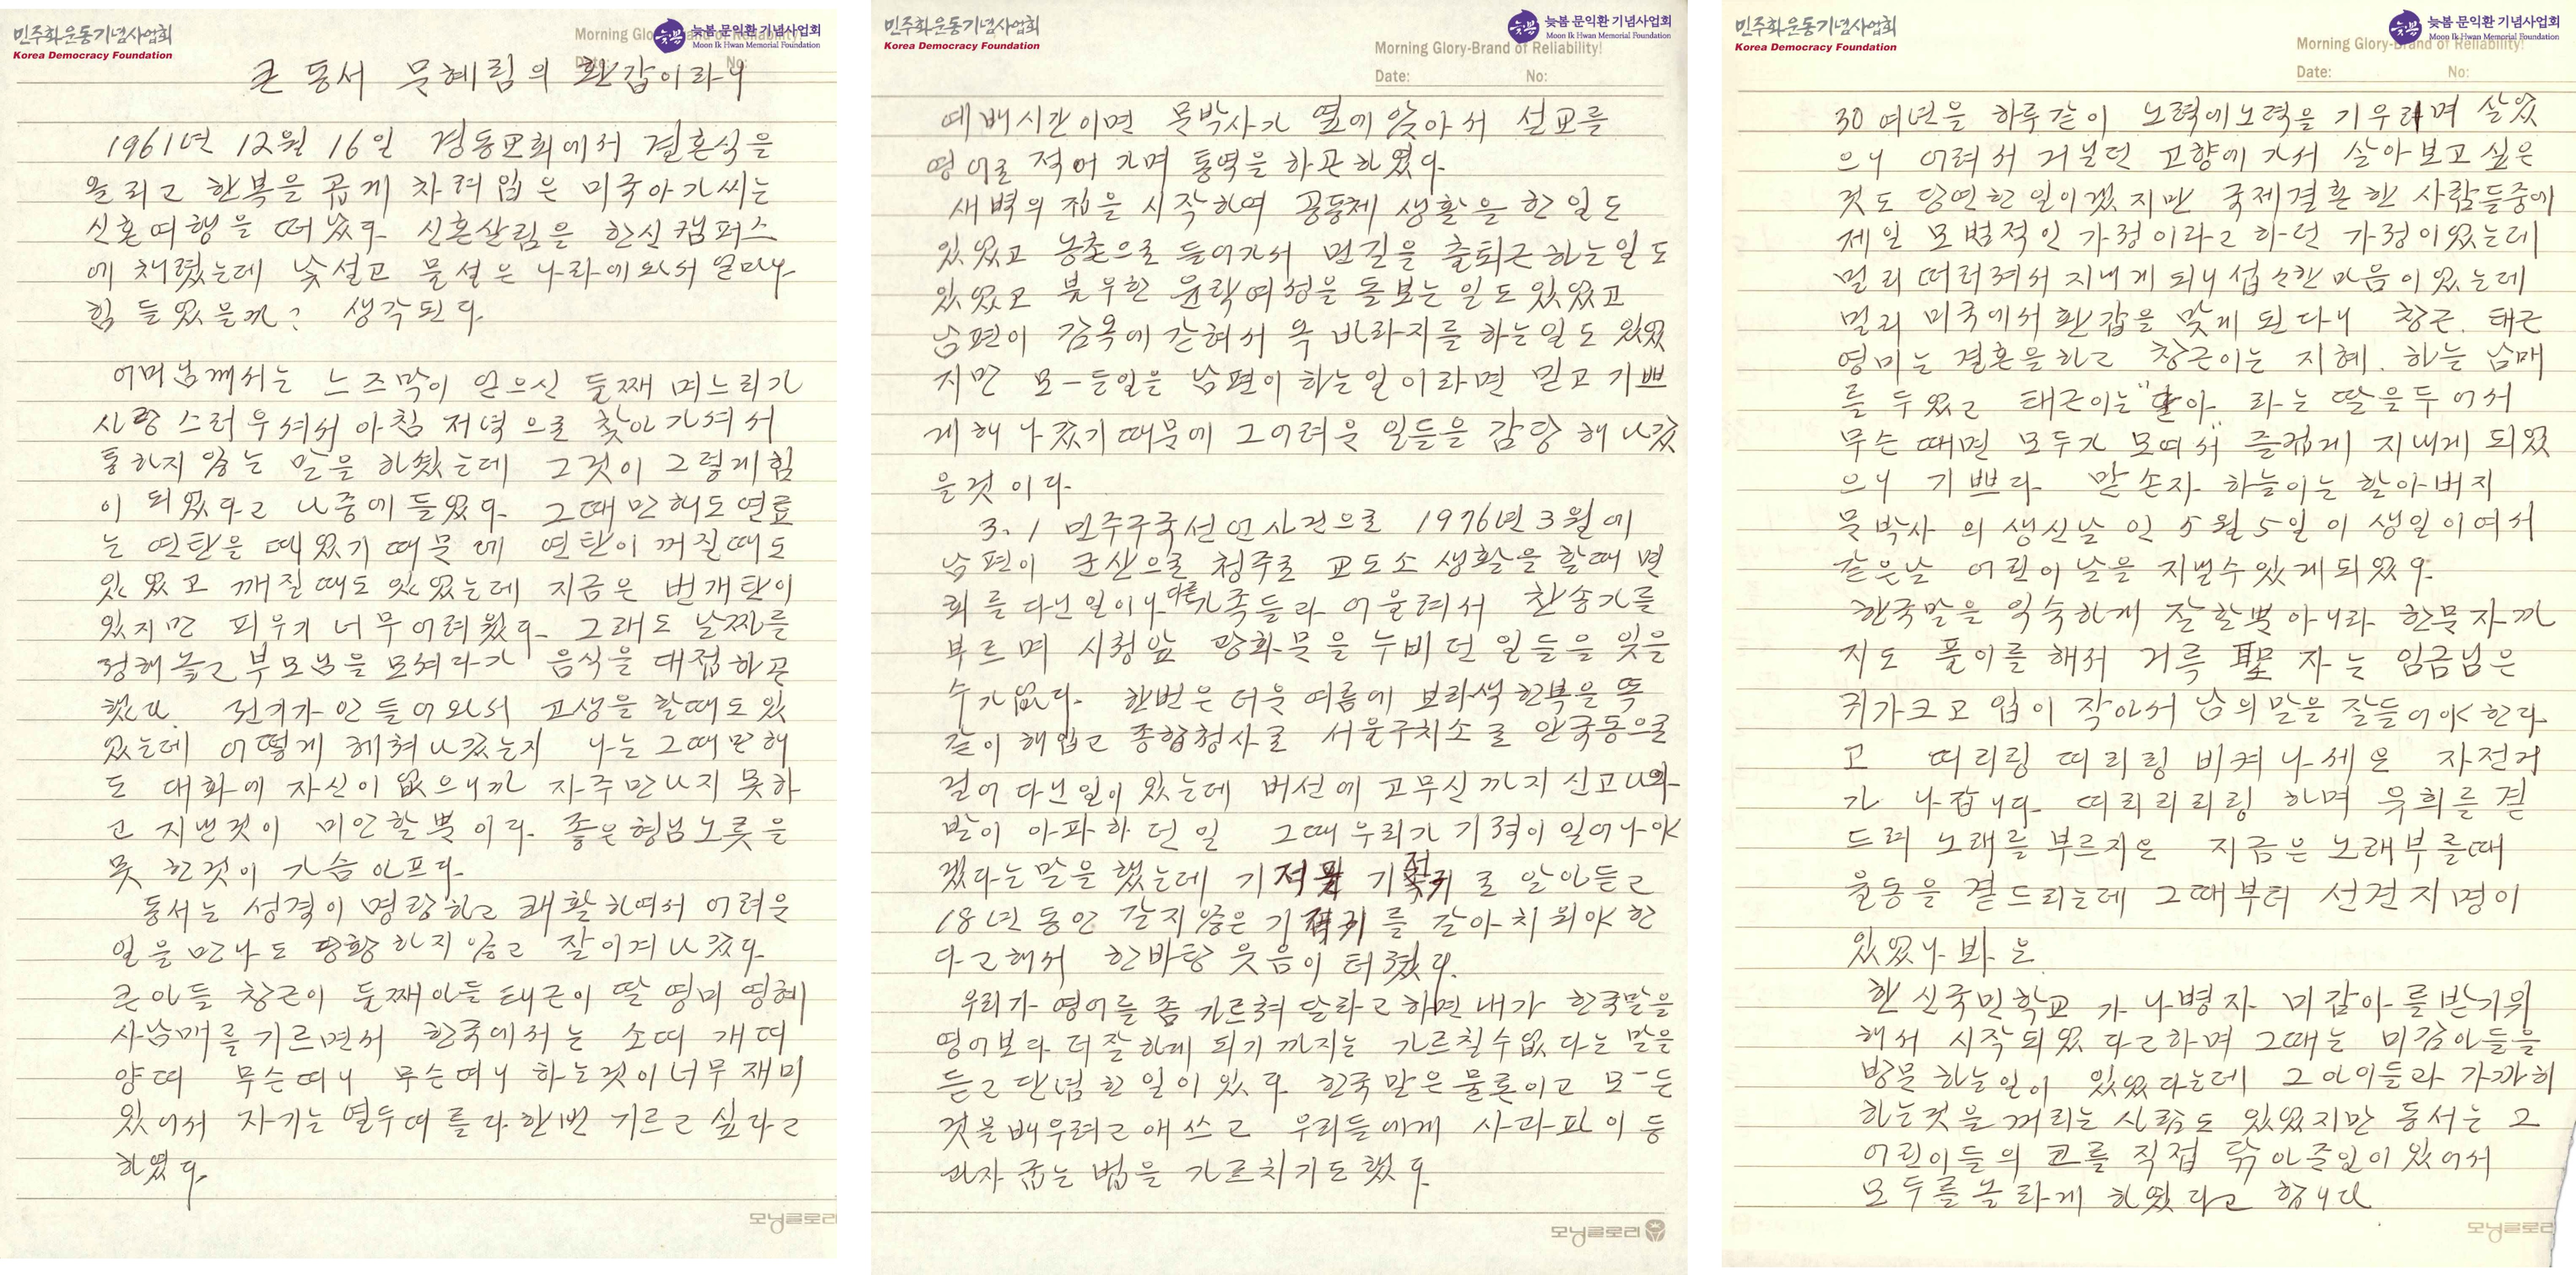 민주화운동기념사업회
Korea Democracy Foundation
Morning Glory-Brand of Reliability!
늦봄 문익환 기념사업회
Moon Ik Hwan Memorial Foundation
Date: No:
큰 동서 문혜림의 환갑이라니
1961년 12월 16일 경동교회에서 결혼식을
올리고 한복을 곱게 차려입은 미국아가씨는
신혼여행을 떠났다. 신혼살림은 한신캠퍼스
에 채렸는데 낯설고 물설은 나라에와서 얼마나
힘 들었을까? 생각된다.
어머님께서는 느즈막이 얻으신 둘째 며느리가
사랑스러우셔서 아침 저녁으로 찾아가셔서
통하지 않는 말을 하셨는데 그것이 그렇게 힘
이 되었다고 나중에 들었다. 그때만해도 연료
는 연탄을 때었기 때문에 연탄이 꺼질때도
있었고 깨질때도 있었는데 지금은 번개탄이
있지만 피우기 너무어려웠다. 그래도 날짜를
정해놓고 부모님을 모셔다가 음식을 대접하곤
했다. 전기가 안들어와서 고생을 할때도 있
었는데 어떻게 헤쳐나갔는지 나는 그때만해
도 대화에 자신이 없으니까 자주만나지 못하
고 지낸것이 미안할뿐이다. 좋은형님노릇을
못 한것이 가슴아프다.
동서는 성격이 명랑하고 쾌활하여서 어려운
일을 만나도 당황하지않고 잘이겨나갔다.
큰아들 창근이 둘째아들 태근이 딸 영미 영혜
사남매를 기르면서 한국에서는 소띠 개띠
양띠 무슨띠니 무슨띠니 하는것이너무 재미
있어서 자기는 열두띠를 다 한번 기르고 싶다고
하였다.
모닝글로리
민주화운동기념사업회
Korea Democracy Foundation
늦봄 문익환 기념사업회
Moon Ik Hwan Memorial Foundation
Morning Glory-Brand of Reliability!
Date: No:
예배시간이면 문박사가 옆에앉아서 설교를
영어로 적어가며 통역을 하곤하였다.
새벽의 집을 시작하여 공동체 생활을 한일도
있었고 농촌으로 들어가서 먼길을 출퇴근하는일도
있었고 불우한 윤락여성을 돌보는 일도 있었고
남편이 감옥에 갇혀서 옥바라지를 하는일도 있었
지만 모-든일은 남편이 하는일이라면 믿고 기쁘
게해 나갔기때문에 그어려운 일들을 감당해 나갔
을것 이다.
3.1 민주구국선언사건으로 1976년 3월에
남편이 군산으로 청주로 교도소 생활을 할때 면
회를 다닌일이나 다른 가족들과 어울려서 찬송가를
부르며 시청앞 광화문을 누비던 일들을 잊을
수가없다. 한번은 더운 여름에 보라색한복을 똑
같이 해입고 종합청사로 서울구치소로 안국동으로
걸어 다닌일이 있는데 버선에 고무신까지 신고나와
발이 아파하던일 그때 우리가 기적이 일어나야
겠다는말을 했는데 기저귀로 알아듣고
18년 동안 갈지않은 기저귀를 갈아치워야 한
다고해서 한바탕 웃음이 터졌다.
우리가 영어를 좀 가르쳐달라고하면 내가 한국말을
영어보다 더잘하게 되기까지는 가르칠수없다는 말을
듣고 단념한일이 있다. 한국말은물론이고 모-든
것을배우려고애쓰고 우리들에게 사과파이등
과자 굽는 법을 가르치기도했다.
모닝글로리
민주화운동기념사업회
Korea Democracy Foundation
늦봄 문익환 기념사업회
Moon Ik Hwan Memorial Foundation
Morning Glory-Brand of Reliability!
Date: No:
30여년을 하루같이 노력에노력을 기우리며 살았
으니 어려서 거닐던 고향에 가서 살아보고싶은
것도 당연한일이겠지만 국제결혼한 사람들중에
제일 모범적인 가정이라고하던 가정이었는데
멀리 떠러져서 지내게 되니 섭섭한 마음이었는데
멀리 미국에서 환갑을 맞게 된다니 창근. 태근
영미는 결혼을하고 창근이는 지혜. 하늘 남매
를 두었고 태근이는 라는 딸을두어서
무슨 때면 모두가 모여서 즐겁게 지내게 되었
으니 기쁘다. 맏손자 하늘이는 할아버지
문박사의 생신날인 5월5일이 생일이여서
같은날 어린이날을 지낼수있게되었다.
한국말을 익숙하게 잘할뿐아니라 한문자까
지도 풀이를 해서 거룩聖자는 임금님은
귀가크고 입이 작아서 남의말을 잘들어야한다
고 띠리링 띠리링 비켜나세요 자전거
가 나갑니다. 띠리리리링 하며 유희를 곁
드려 노래를부르지요 지금은 노래부를때
율동을 곁드리는데 그때부터 선견지명이
있었나 봐요.
한신국민학교가 나병자 미감아를받기위
해서 시작되었다고하며 그때는 미감아들을
방문하는일이 있었다는데 그아이들과 가까히
하는것을 꺼리는 사람도 있었지만 동서는 그
어린이들의 코를 직접 닦아준일이있어서
모두를놀라게 하였다고 합니다
모닝글로리